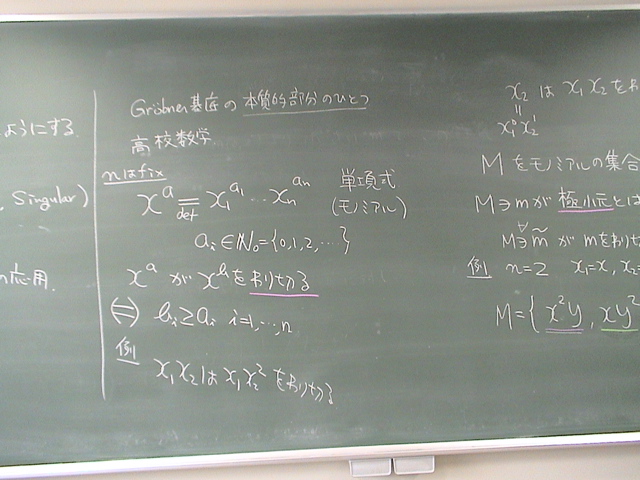 ようにする
Singular)
の応用.
Gröbner基底の本質的部分のひとつ
高校数学
nはfix
x^a =def x₁^{a₁} ⋯ x_n^{a_n} 単項式
(モノミアル)
aᵢ ∈ ℕ₀ = {0,1,2,⋯}
x^a が x^b をわり切る
⇔ bᵢ ≥ aᵢ i=1,⋯,n
例
x₁x₂ は x₁x₂² をわり切る
x₂ は x₁x₂ をわ
||
x₁⁰x₂¹
M をモノミアルの集合
M∋m が 極小元とは
M∋∀m̃ が m をわり切
例 n=2 x₁=x, x₂=
M={ x²y, xy²